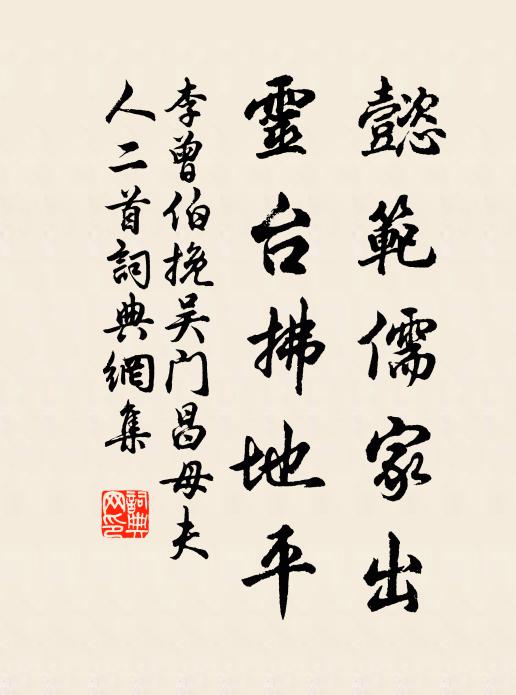 懿範儒家出
靈台拂地平
李曾伯挽吴门昌母夫
人二首詞典網集
詞典
网印